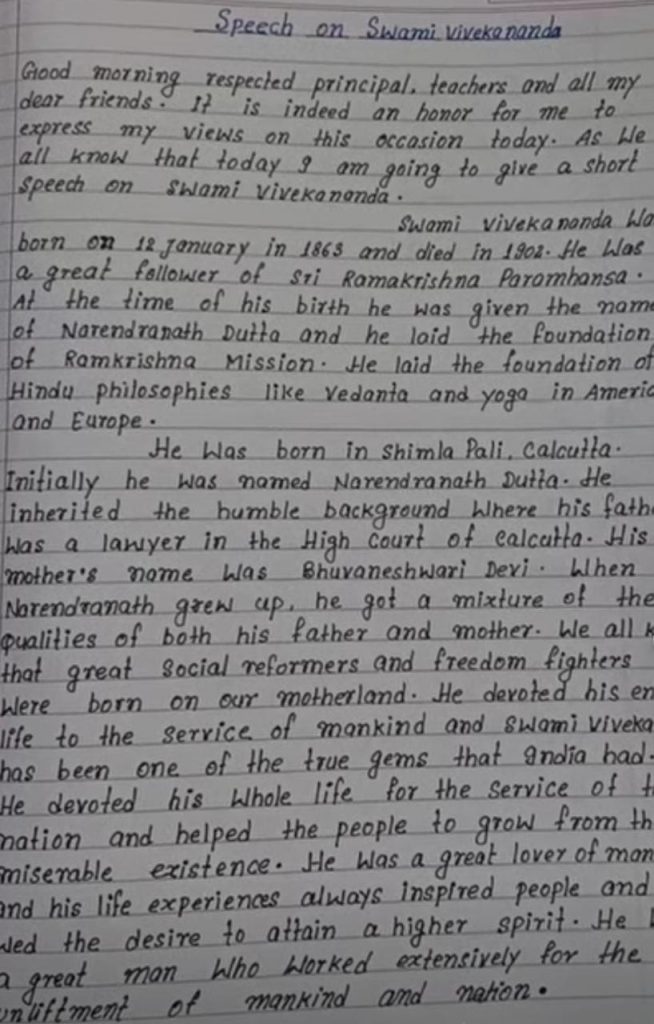 Speech on Swami Vivekananda
Good morning respected principal, teachers and all my
dear friends. It is indeed an honor for me to
express my views on this occasion today. As We
all know that today I am going to give a short
speech on Swami Vivekananda.
Swami Vivekananda Wa
born on 12 January in 1863 and died in 1902. He Was
a great follower of Sri Ramakrishna Paramhansa.
At the time of his birth he was given the name
of Narendranath Dutta and he laid the foundation
of Ramkrishna Mission. He laid the foundation of
Hindu philosophies like Vedanta and yoga in Americ
and Europe.
He Was born in Shimla Pali, Calcutta.
Initially he was named Narendranath Dutta. He
inherited the humble background Where his fath
Was a lawyer in the High Court of Calcutta. His
mother's name Was Bhuvaneshwari Devi. When
Narendranath grew up, he got a mixture of the
qualities of both his father and mother. We all k
that great social reformers and freedom fighters
Were born on our motherland. He devoted his en
life to the service of mankind and Swami Viveka
has been one of the true gems that India had.
He devoted his Whole life for the service of t
nation and helped the people to grow from th
miserable existence. He Was a great lover of man
and his life experiences always inspired people and
wed the desire to attain a higher spirit. He
a great man Who Worked extensively for the
upliftment of mankind and nation.